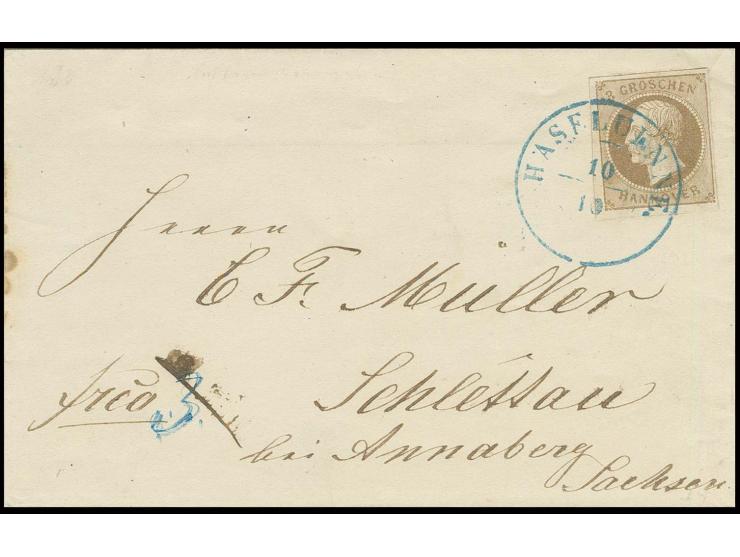 3 GROSCHEN
HANNOVER
HASELÜNNE
10
10
Herrn
C F. Müller
frco 3
Schlettau
bei Annaberg
Sachsen